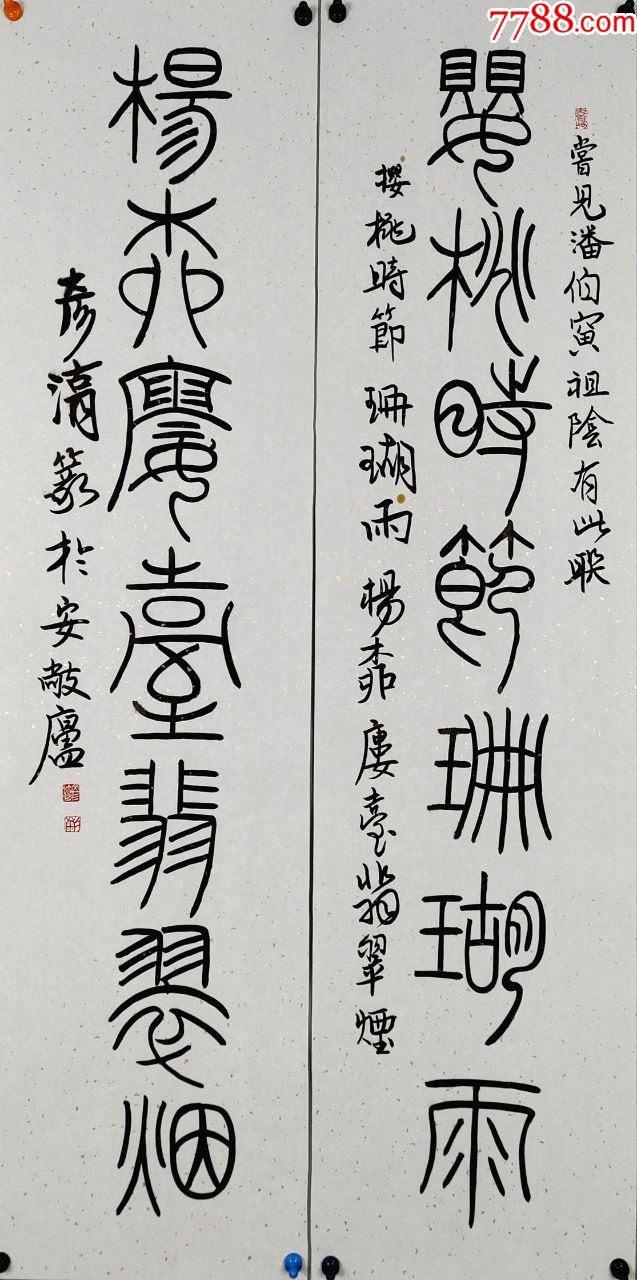 7788.com
嘗見潘伯寅祖蔭有此聯
櫻桃時節珊瑚雨
櫻桃時節珊瑚雨楊柳廔臺翡翠煙
楊柳廔臺翡翠烟
彥濤篆於安敞廬